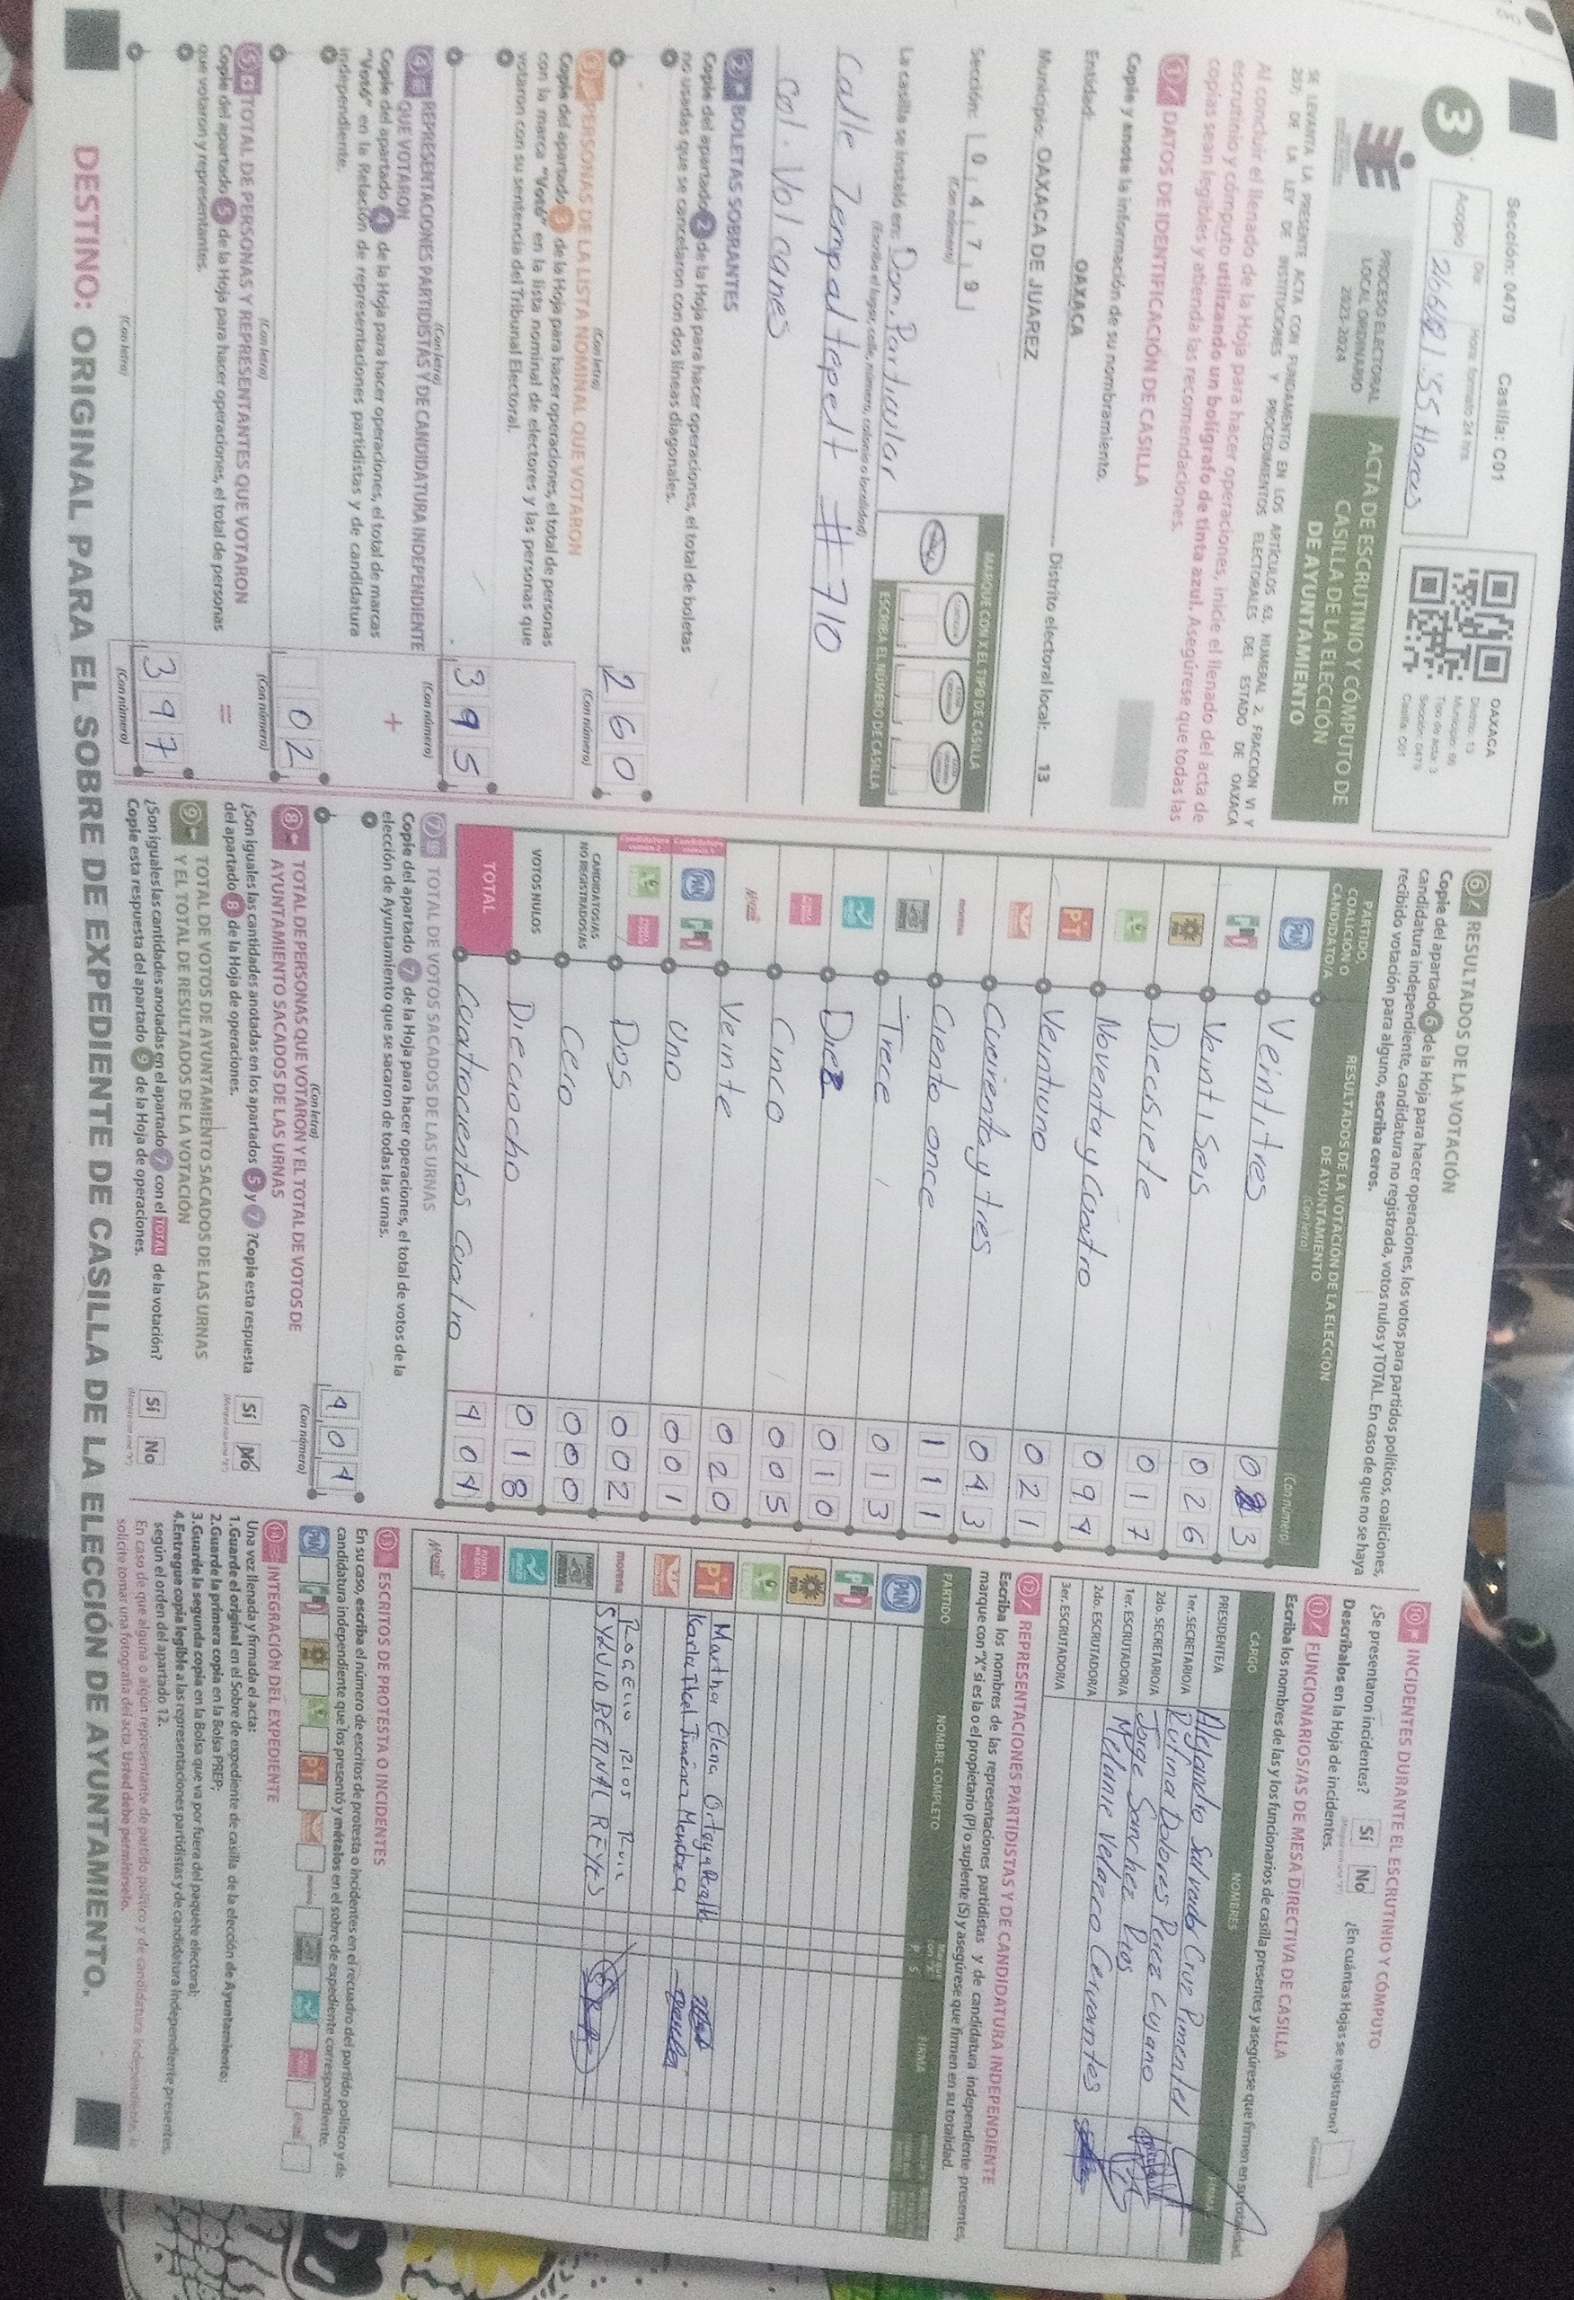 Sección: 0479 Casilla: C01
Acopio
Día
Hora: formato 24 hrs
1:55 Horas
OAXACA
Distrito: 13
Tipo de Acta: 3
Sección: 0479
Casilla: C01
3
PROCESO ELECTORAL
LOCAL ORDINARIO
2023-2024
ACTA DE ESCRUTINIO Y CÓMPUTO DE
CASILLA DE LA ELECCIÓN
DE AYUNTAMIENTO
SE LEVANTA LA PRESENTE ACTA CON FUNDAMENTO EN LOS ARTÍCULOS 63, NUMERAL 2, FRACCIÓN VI Y
257; DE LA LEY DE INSTITUCIONES Y PROCEDIMIENTOS ELECTORALES DEL ESTADO DE OAXACA
Al concluir el llenado de la Hoja para hacer operaciones, inicie el llenado del acta de
escrutinio y cómputo utilizando un bolígrafo de tinta azul. Asegúrese que todas las
copias sean legibles y atienda las recomendaciones.
1 DATOS DE IDENTIFICACIÓN DE CASILLA
Copie y anote la información de su nombramiento.
Entidad: OAXACA Distrito electoral local: 13
Municipio: OAXACA DE JUAREZ
Sección: 0 4 7 9
(Con número)
MARQUE CON X EL TIPO DE CASILLA
ESCRIBA EL NÚMERO DE CASILLA
La casilla se instaló en: Dom. Particular
(Escriba el lugar, calle, número, colonia o localidad)
Calle Zempaltepelt #710
Col. Volcanes
2 BOLETAS SOBRANTES
Copie del apartado 2 de la Hoja para hacer operaciones, el total de boletas
no usadas que se cancelaron con dos líneas diagonales.
260
(Con letra) (Con número)
3 PERSONAS DE LA LISTA NOMINAL QUE VOTARON
Copie del apartado 3 de la Hoja para hacer operaciones, el total de personas
con la marca "Votó" en la lista nominal de electores y las personas que
votaron con su sentencia del Tribunal Electoral.
395
(Con letra) (Con número)
4 REPRESENTACIONES PARTIDISTAS Y DE CANDIDATURA INDEPENDIENTE
QUE VOTARON
Copie del apartado 4 de la Hoja para hacer operaciones, el total de marcas
"Votó" en la Relación de representaciones partidistas y de candidatura
independiente.
+
02
(Con letra) (Con número)
5 TOTAL DE PERSONAS Y REPRESENTANTES QUE VOTARON
Copie del apartado 5 de la Hoja para hacer operaciones, el total de personas
que votaron y representantes.
=
397
(Con letra) (Con número)
6 RESULTADOS DE LA VOTACIÓN
Copie del apartado 6 de la Hoja para hacer operaciones, los votos para partidos políticos, coaliciones,
candidatura independiente, candidatura no registrada, votos nulos y TOTAL. En caso de que no se haya
recibido votación para alguno, escriba ceros.
PARTIDO,
COALICIÓN O
CANDIDATO/A
RESULTADOS DE LA VOTACIÓN DE LA ELECCIÓN
DE AYUNTAMIENTO
(Con letra) (Con número)
PAN Veintitres 023
PRI Veintiseis 026
PRD Diecisiete 017
Noventa y cuatro 094
PT Veintiuno 021
Cuarenta y tres 043
morena Ciento once 111
Trece 013
Diez 010
Cinco 005
Veinte 020
PAN PRI Uno 001
Dos 002
CANDIDATOS/AS
NO REGISTRADOS/AS
Cero 000
VOTOS NULOS Dieciocho 018
TOTAL Cuatrocientos cuatro 404
7 TOTAL DE VOTOS SACADOS DE LAS URNAS
Copie del apartado 7 de la Hoja para hacer operaciones, el total de votos de la
elección de Ayuntamiento que se sacaron de todas las urnas.
404
(Con letra) (Con número)
8 TOTAL DE PERSONAS QUE VOTARON Y EL TOTAL DE VOTOS DE
AYUNTAMIENTO SACADOS DE LAS URNAS
¿Son iguales las cantidades anotadas en los apartados 5 y 7 ?Copie esta respuesta
del apartado 8 de la Hoja de operaciones.
Sí No
9 TOTAL DE VOTOS DE AYUNTAMIENTO SACADOS DE LAS URNAS
Y EL TOTAL DE RESULTADOS DE LA VOTACIÓN
¿Son iguales las cantidades anotadas en el apartado 7 con el TOTAL de la votación?
Copie esta respuesta del apartado 9 de la Hoja de operaciones.
Sí No
10 INCIDENTES DURANTE EL ESCRUTINIO Y CÓMPUTO
¿Se presentaron incidentes? Sí No ¿En cuántas Hojas se registraron?
Descríbalos en la Hoja de incidentes.
11 FUNCIONARIOS/AS DE MESA DIRECTIVA DE CASILLA
Escriba los nombres de las y los funcionarios de casilla presentes y asegúrese que firmen en su totalidad.
CARGO NOMBRES FIRMA
PRESIDENTE/A Alejandro Salvador Cruz Pimentel
1er. SECRETARIO/A Rufina Dolores Perez Lujano
2do. SECRETARIO/A Jorge Sanchez Rios
1er. ESCRUTADOR/A Melanie Velazco Cervantes
2do. ESCRUTADOR/A
3er. ESCRUTADOR/A
12 REPRESENTACIONES PARTIDISTAS Y DE CANDIDATURA INDEPENDIENTE
Escriba los nombres de las representaciones partidistas y de candidatura independiente presentes,
marque con "X" si es la o el propietario (P) o suplente (S) y asegúrese que firmen en su totalidad.
PARTIDO NOMBRE COMPLETO P S FIRMA
PAN
PRI
PRD
PT Martha Elena Ortega
Karla Itzel Jiménez Mendoza
morena ROGELIO RIOS RUIZ
SYLVIO BERNAL REYES
13 ESCRITOS DE PROTESTA O INCIDENTES
En su caso, escriba el número de escritos de protesta o incidentes en el recuadro del partido político y de
candidatura independiente que los presentó y métalos en el sobre de expediente correspondiente.
14 INTEGRACIÓN DEL EXPEDIENTE
Una vez llenada y firmada el acta:
1.Guarde el original en el Sobre de expediente de casilla de la elección de Ayuntamiento;
2.Guarde la primera copia en la Bolsa PREP;
3.Guarde la segunda copia en la Bolsa que va por fuera del paquete electoral;
4.Entregue copia legible a las representaciones partidistas y de candidatura independiente presentes,
según el orden del apartado 12.
En caso de que alguna o algún representante de partido político y de candidatura independiente, le
solicite tomar una fotografía del acta. Usted debe permitírselo.
DESTINO: ORIGINAL PARA EL SOBRE DE EXPEDIENTE DE CASILLA DE LA ELECCIÓN DE AYUNTAMIENTO.